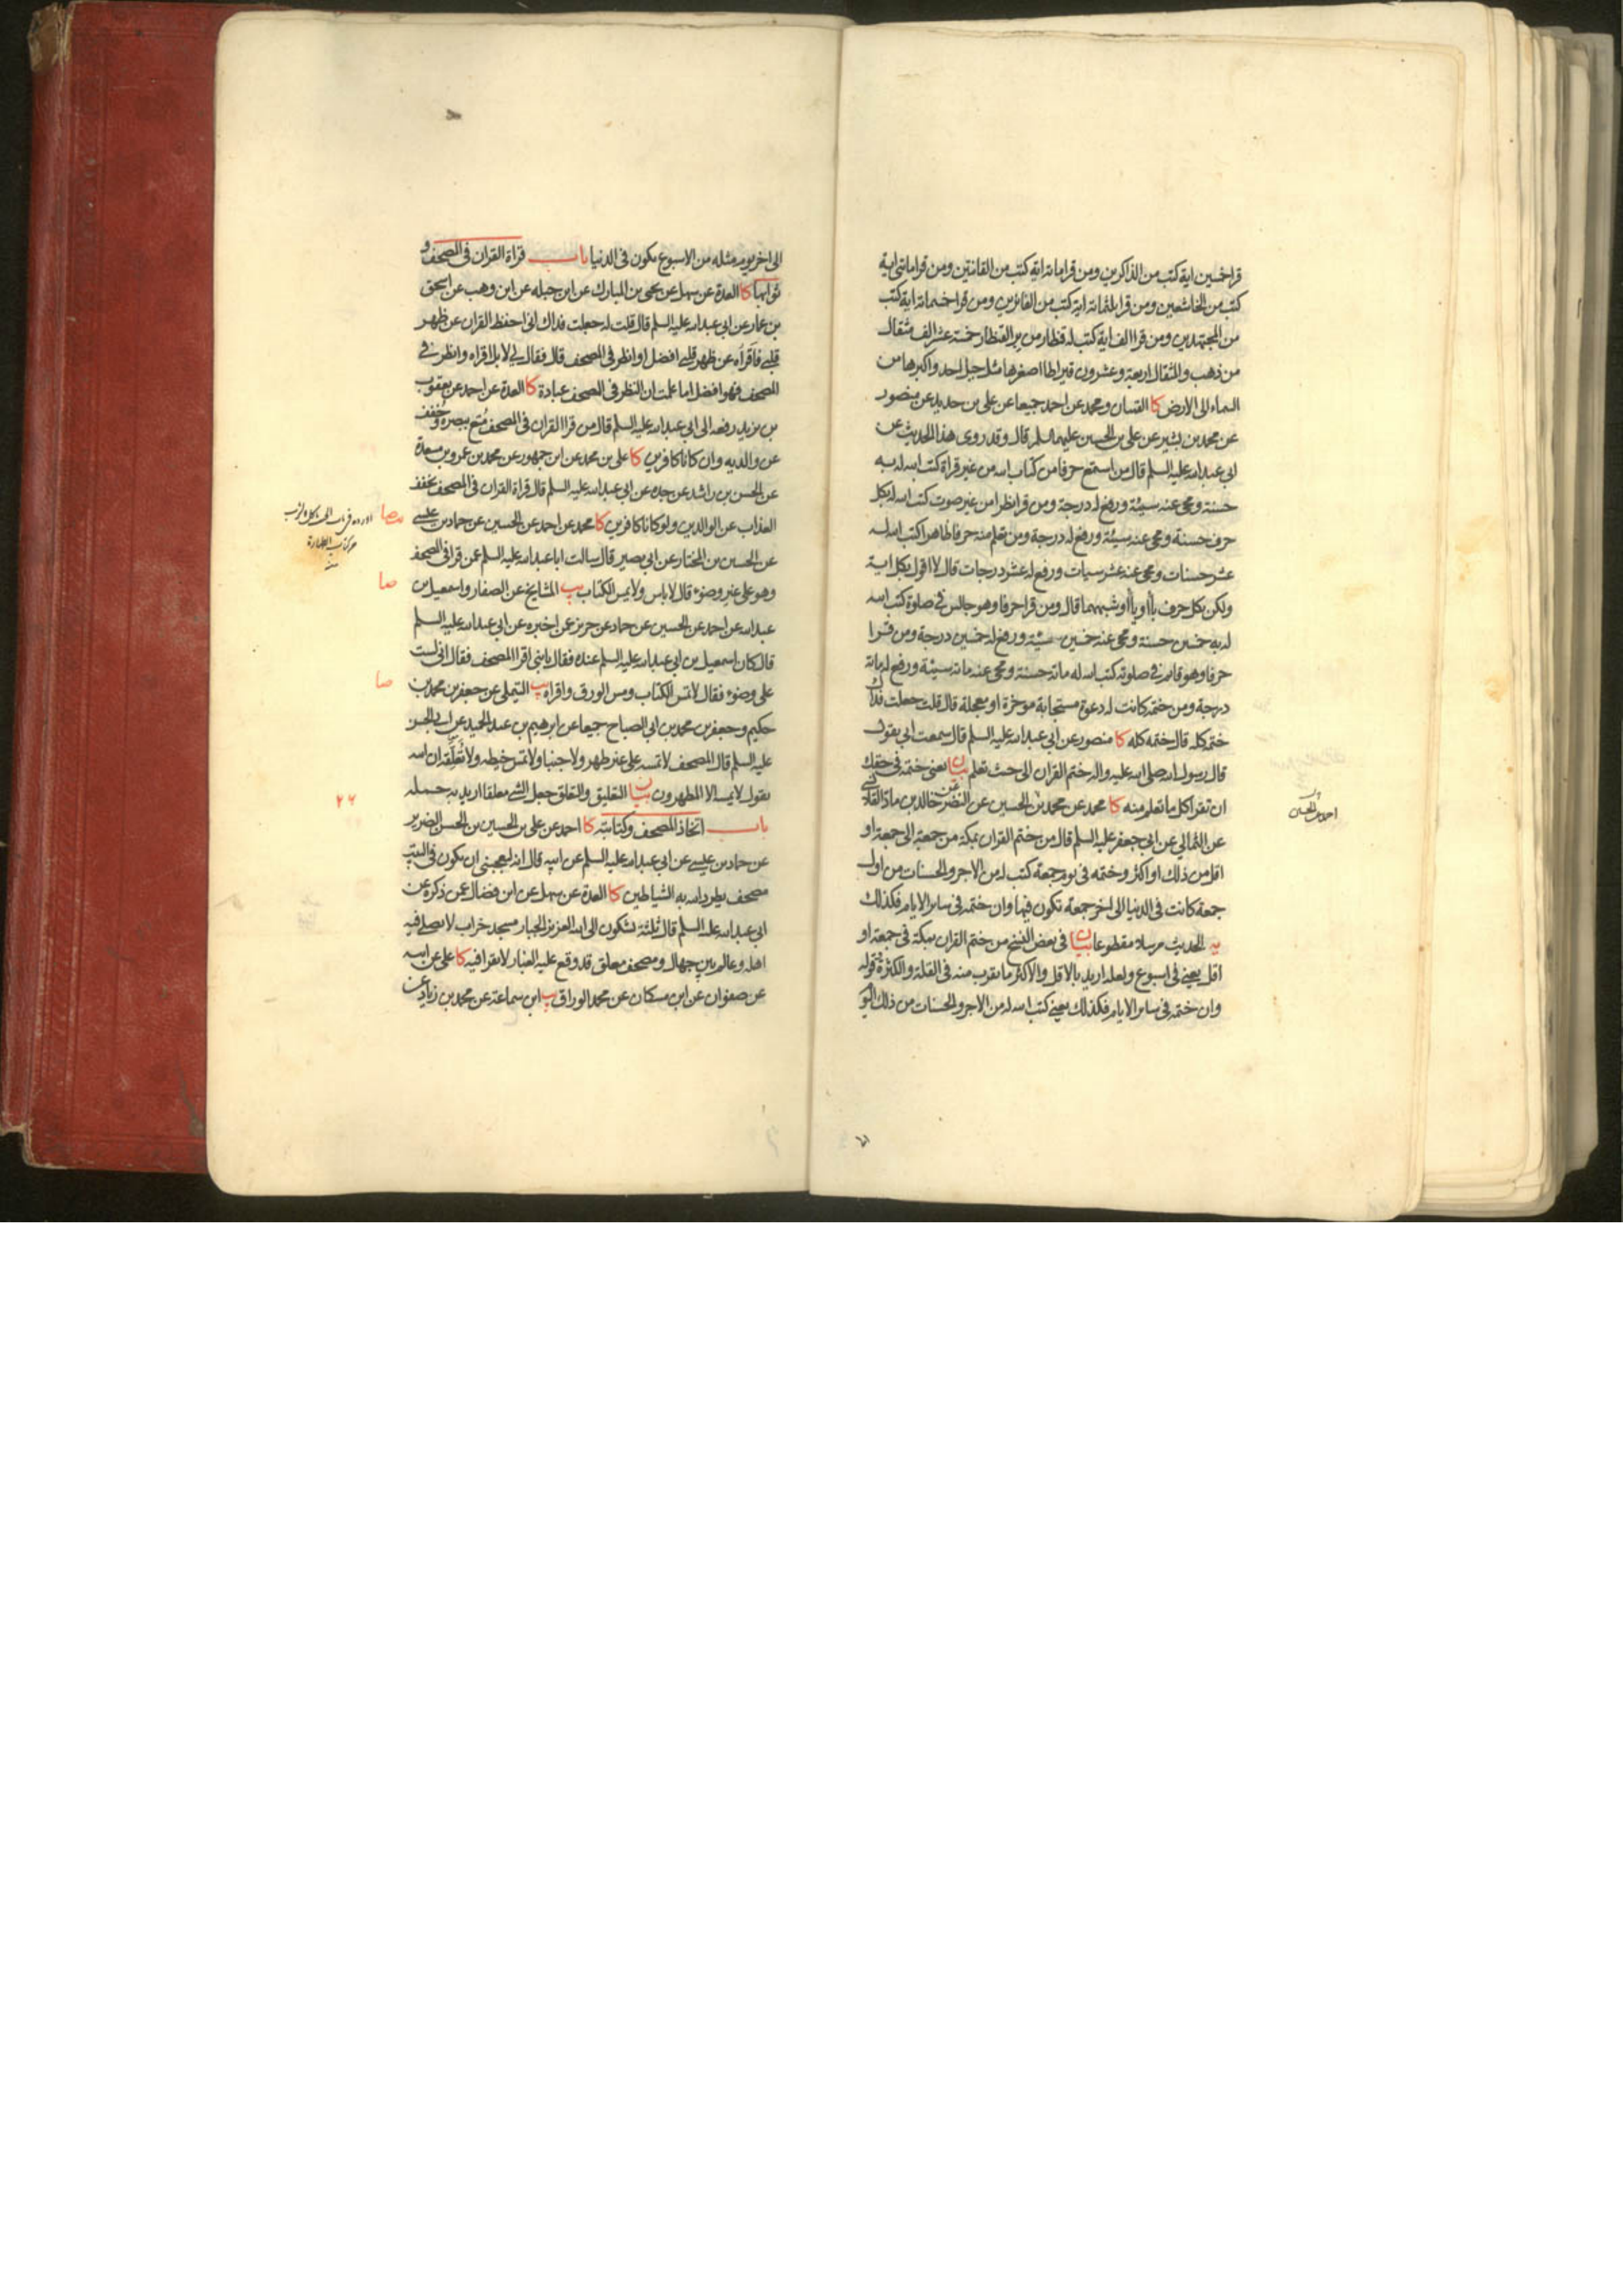 قرا خمسين اية كتب من الذاكرين ومن قرا ماته اية كتب من القانتين ومن قرا ماتى اية
كتب من الخاشعين ومن قرا ثلثماته اية كتب من الفائزين ومن قرا خمسماته اية كتب
من المجتهدين ومن قرا الف اية كتب له قنطار من بر القنطار خمسة عشر الف مثقال
من ذهب والمثقال اربعة وعشرون قيراطا اصغرها مثل جبل احد واكبرها من
السماء الى الارض كا القميان ومحمد عن احمد جميعا عن على بن حديد عن منصور
عن محمد بن بشير عن على بن الحسين عليهما السلم قال وقد روى هذا الحديث عن
ابى عبد الله عليه السلم قال من استمع حرفا من كتاب الله من غير قراة كتب الله له به
حسنة ومحى عنه سيئة ورفع له درجة ومن قرا نظرا من غير صوت كتب الله له بكل
حرف حسنة ومحى عنه سيئة ورفع له درجة ومن تعلم منه حرفا ظاهرا كتب الله له
عشر حسنات ومحى عنه عشر سيات ورفع له عشر درجات قال لا اقول بكل اية
ولكن بكل حرف باء او ياء او شبههما قال ومن قرا حرفا وهو جالس فى صلوة كتب الله
له به خمسين حسنة ومحى عنه خمسين سيئة ورفع له خمسين درجة ومن قرا
حرفا وهو قائم فى صلوته كتب الله له ماتة حسنة ومحى عنه ماتة سيئة ورفع له ماتة
درجة ومن ختمه كانت له دعوة مستجابة موخرة او معجلة قال قلت جعلت فداك
ختمه كله قال ختمه كله كا منصور عن ابى عبد الله عليه السلم قال سمعت ابى يقول
قال رسول الله صلى الله عليه واله ختم القران الى حيث تعلم بيان يعنى ختمه فى حقك
ان تقرا كل ما تعلم منه كا محمد عن محمد بن الحسين عن النضر عن خالد بن ماد القلانسى
عن الثمالي عن ابى جعفر عليه السلم قال من ختم القران بمكة من جمعة الى جمعة او
اقل من ذلك او اكثر وختمه فى يوم جمعة كتب له من الاجر والحسنات من اول
جمعة كانت فى الدنيا الى اخر جمعة تكون فيها وان ختمه فى سائر الايام فكذلك
يه الحديث مرسلا مقطوعا بيان فى بعض النسخ من ختم القران بمكة فى جمعة او
اقل يعنى فى اسبوع ولعله اريد بالاقل والاكثر ما يقرب منه فى القلة والكثرة قوله
وان ختمه فى سائر الايام فكذلك يعنى كتب الله له من الاجر والحسنات من ذلك اليوم
احمد بن الحسين
الى اخر يوم مثله من الاسبوع يكون فى الدنيا باب قراة القران فى المصحف و
ثوابها كا العدة عن سهل عن يحيى بن المبارك عن ابن جبله عن ابن وهب عن اسحق
بن عمار عن ابى عبد الله عليه السلم قال قلت له جعلت فداك انى احفظ القران عن ظهر
قلبى فاقراه عن ظهر قلبى افضل او انظر فى المصحف قال فقال لى لا بل اقراه وانظر فى
المصحف فهو افضل اما علمت ان النظر فى المصحف عبادة كا العدة عن احمد عن يعقوب
بن يزيد رفعه الى ابى عبد الله عليه السلم قال من قرا القران فى المصحف متع ببصره وخفف
عن والديه وان كانا كافرين كا على بن محمد عن ابن جمهور عن محمد بن عمرو بن مسعدة
عن الحسن بن راشد عن جده عن ابى عبد الله عليه السلم قال قراة القران فى المصحف تخفف
العذاب عن الوالدين ولو كانا كافرين كا محمد عن احمد عن الحسين عن حماد بن عيسى
عن الحسين بن المختار عن ابى بصير قال سالت ابا عبد الله عليه السلم عمن قرا فى المصحف
وهو على غير وضوء قال لا باس ولا يمس الكتاب يب المشايخ عن الصفار واسمعيل بن
عبد الله عن احمد عن الحسين عن حماد عن حريز عمن اخبره عن ابى عبد الله عليه السلم
قال كان اسمعيل بن ابى عبد الله عليه السلم عنده فقال يا بنى اقرا المصحف فقال انى لست
على وضوء فقال لا تمس الكتاب ومس الورق واقراه يب التيملى عن جعفر بن محمد بن
حكيم وجعفر بن محمد بن ابى الصباح جميعا عن ابرهيم بن عبد الحميد عن ابى الحسن
عليه السلم قال المصحف لا تمسه على غير طهر ولا جنبا ولا تمس خيطه ولا تعلقه ان الله
يقول لا يمسه الا المطهرون بيان التعليق والتعلق جعل الشى معلقا اريد به حمله
باب اتخاذ المصحف وكتابته كا احمد عن على بن الحسين بن الحسن الضرير
عن حماد بن عيسى عن ابى عبد الله عليه السلم عن ابيه قال انه ليعجبنى ان يكون فى البيت
مصحف يطرد الله به الشياطين كا العدة عن سهل عن ابن فضال عمن ذكره عن
ابى عبد الله عليه السلم قال ثلثة يشكون الى الله العزيز الجبار مسجد خراب لا يصلى فيه
اهله وعالم بين جهال ومصحف معلق قد وقع عليه الغبار لا يقرا فيه كا على عن ابيه
عن صفوان عن ابن مسكان عن محمد الوراق يب ابن سماعة عن محمد بن زياد عن
صا
من كتاب الطهارة
صا
صا
٢٦